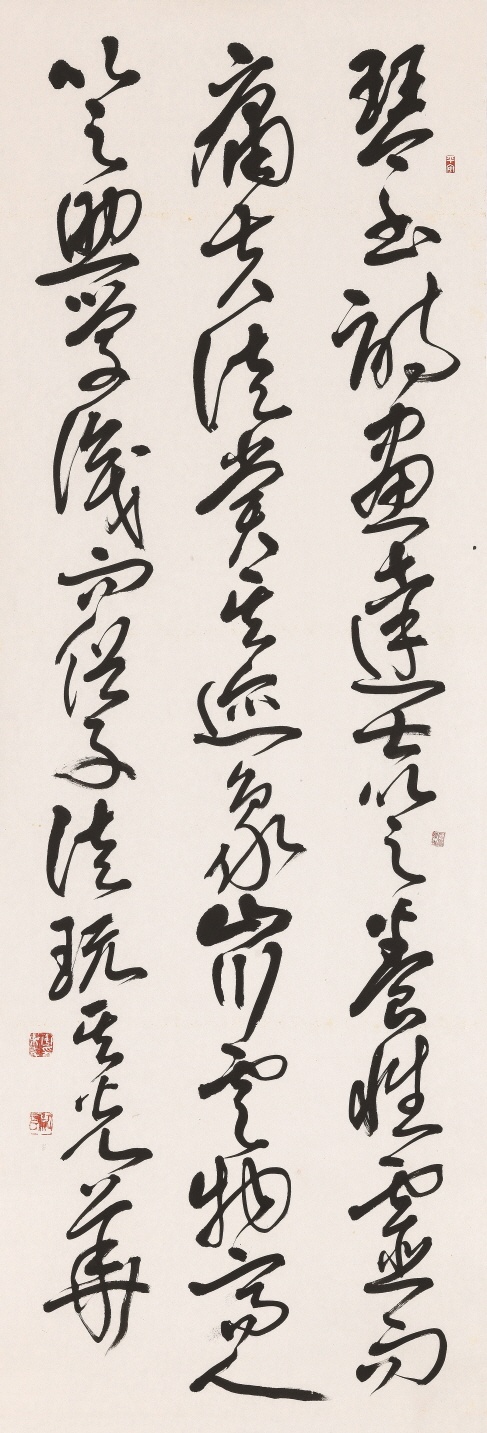 琴書詩畫達士以之養性靈而
庸夫徒賞其迹象山川雲物高人
以之助學識而俗子徒玩其光華